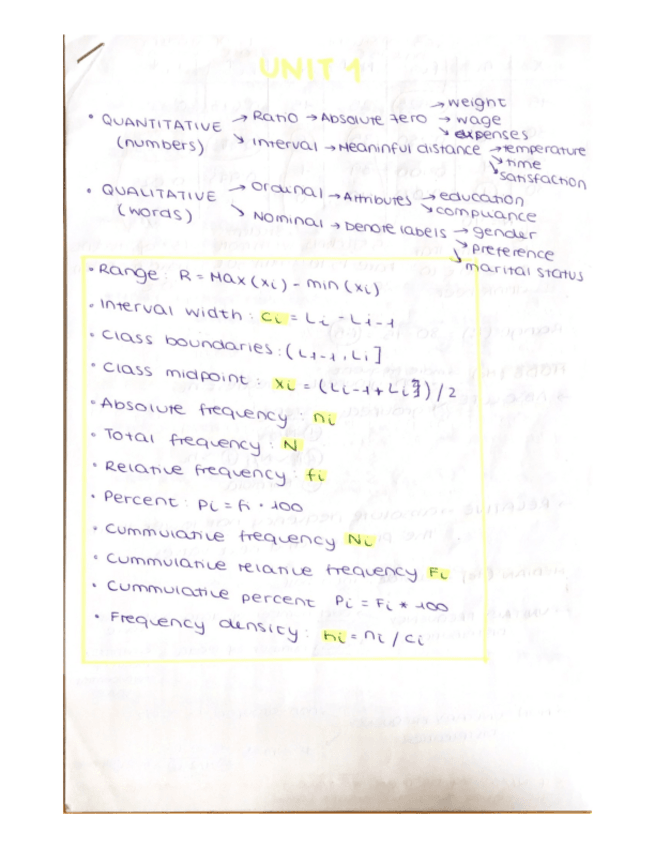 UNIT 1
→ weight
• QUANTITATIVE → Ratio → Absolute zero → wage
(numbers) ↘ Interval → Meaninful distance ↘ expenses
→ temperature
↘ time
↘ satisfaction
• QUALITATIVE → Ordinal → Attributes → education
(words) ↘ compliance
↘ Nominal → Denote labels → gender
↘ preference
↘ marital status
• Range: R = Max (xi) - min (xi)
• Interval width: ci = Li - Li-1
• Class boundaries: (Li-1, Li]
• Class midpoint: xi = (Li-1 + Li) / 2
• Absolute frequency: ni
• Total frequency: N
• Relative frequency: fi
• Percent: pi = fi · 100
• Cummulative frequency Ni
• Cummulative relative frequency Fi
• Cummulative percent Pi = Fi * 100
• Frequency density: hi = ni / ci